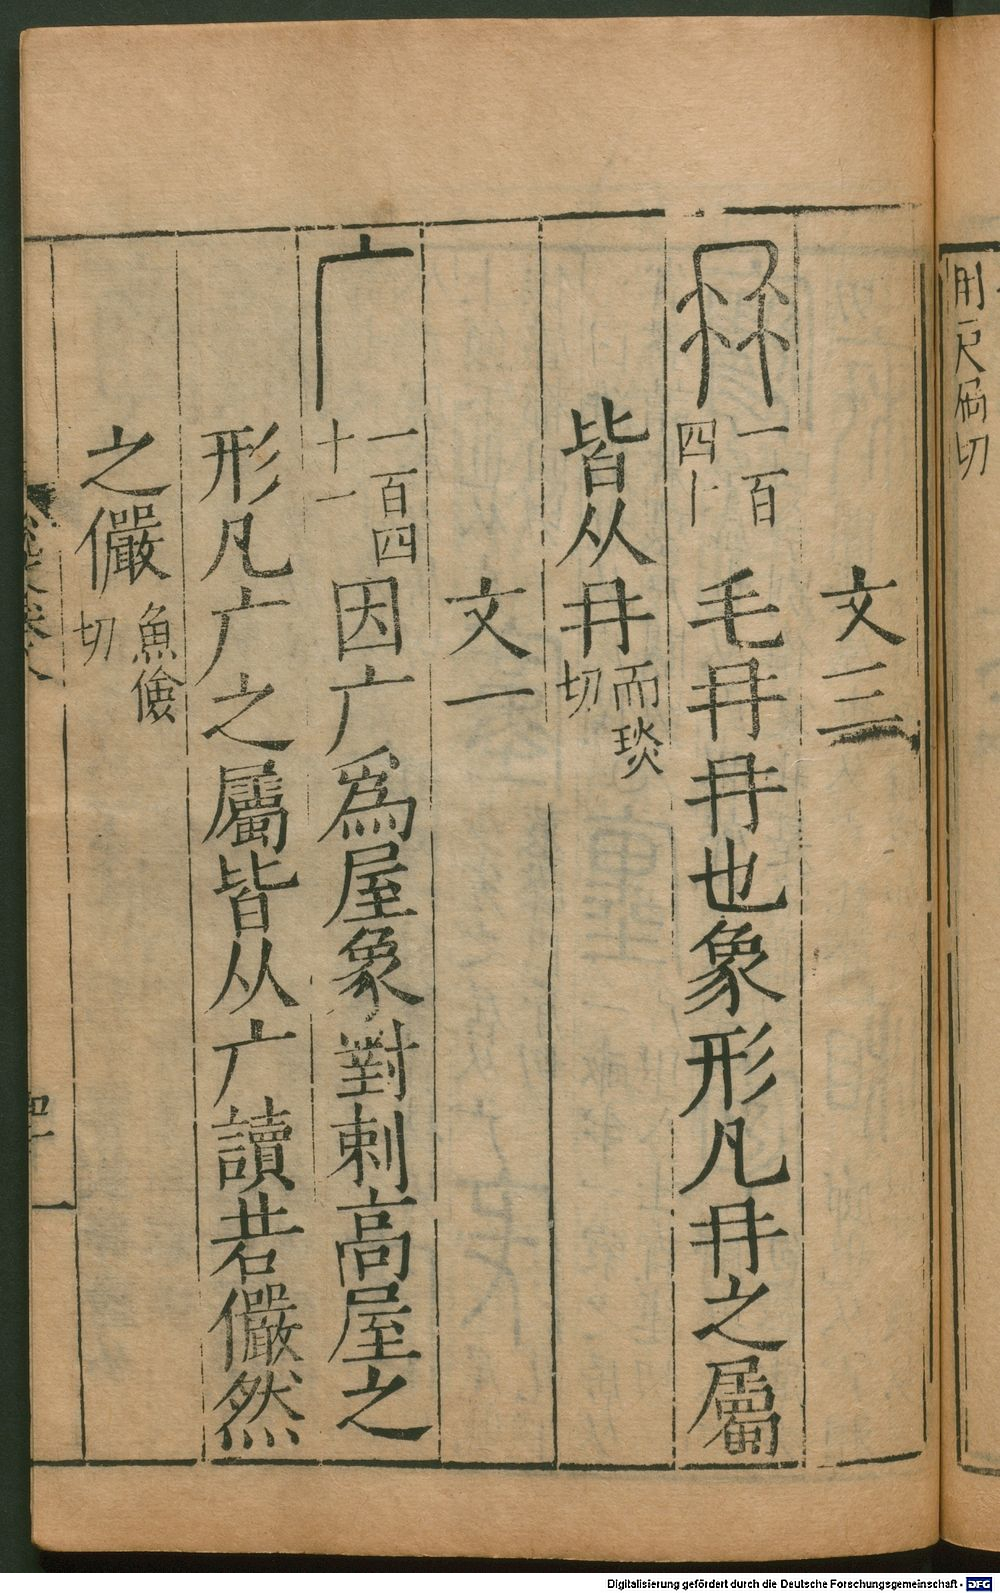 文三
冄 一百四十 毛冄冄也象形凡冄之屬
皆从冄 而琰切
文一
广 一百四十一 因广爲屋象對剌高屋之
形凡广之屬皆从广讀若儼然
之儼 魚儉切
Digitalisierung gefördert durch die Deutsche Forschungsgemeinschaft - DFG